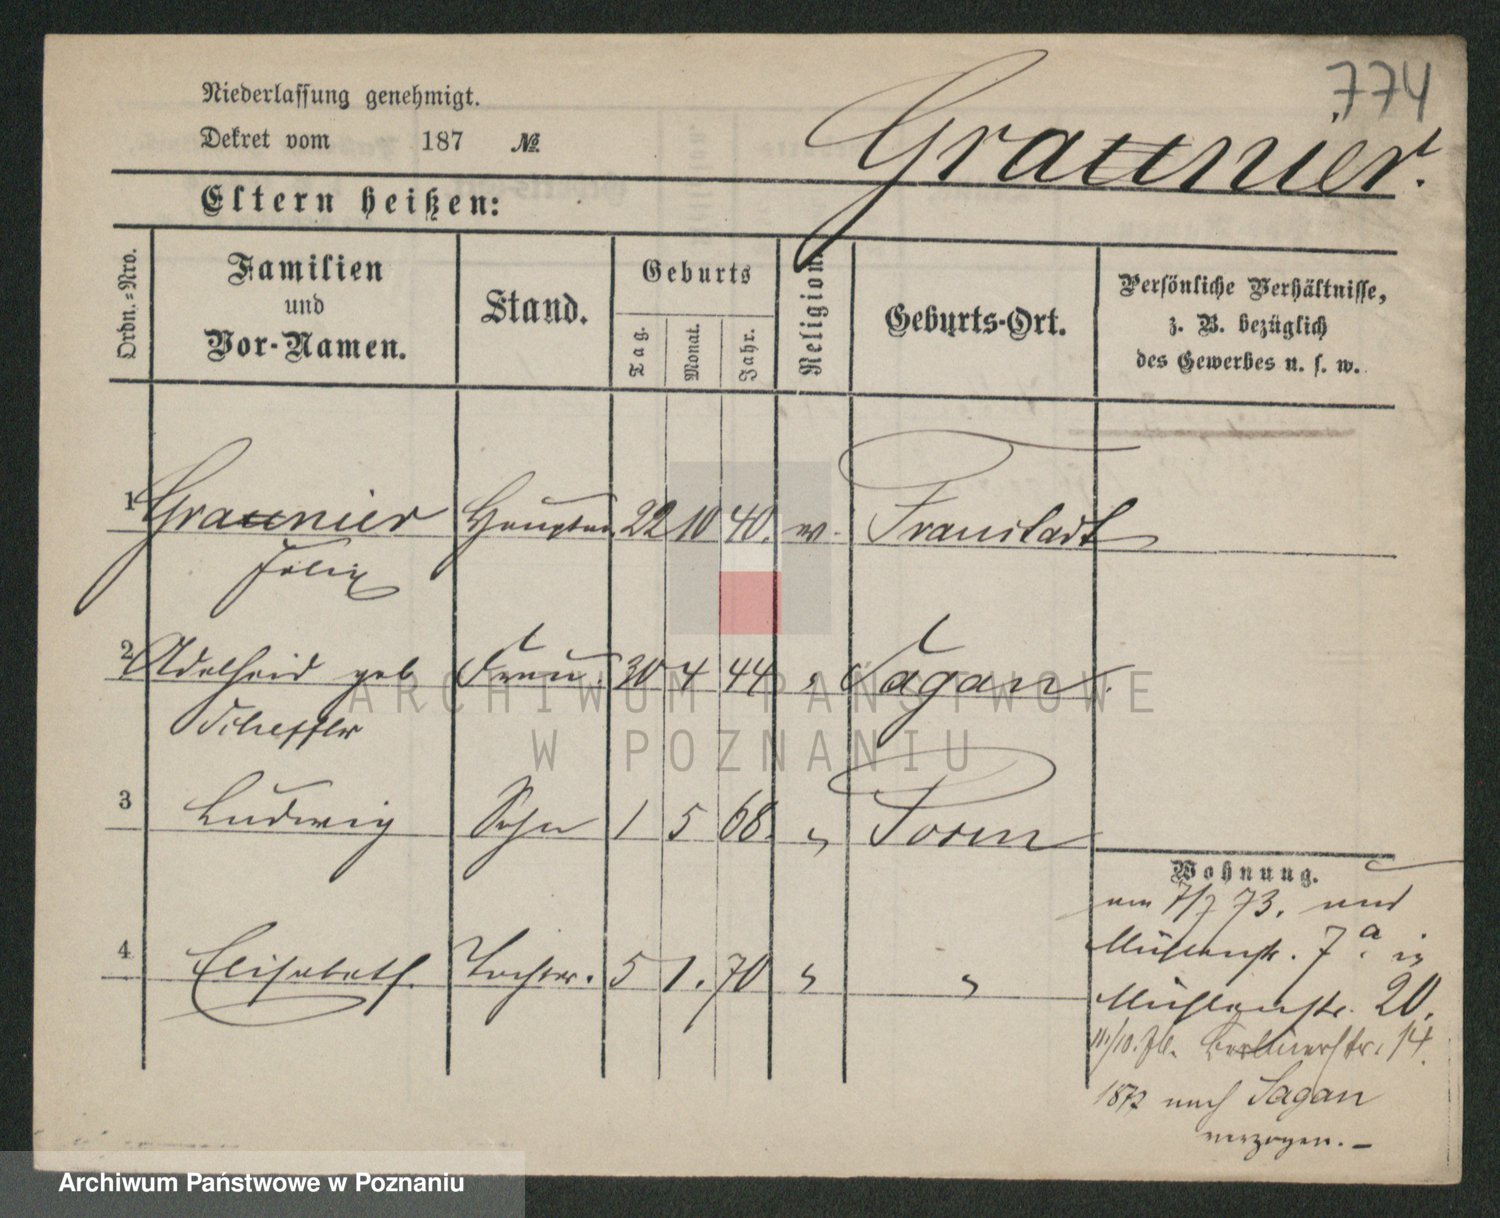 774
Niederlassung genehmigt.
Dekret vom 187 №
Graunier.
Eltern heißen:
Ordn.=Nro.
Familien und Vor-Namen.
Stand.
Geburts
Tag.
Monat.
Jahr.
Religion.
Geburts-Ort.
Persönliche Verhältnisse, z. B. bezüglich des Gewerbes u. s. w.
1 Graunier Hauptm. 22 10 40. ev. Fraustadt
Felix
2 Adelheid geb Frau. 30 4 44 " Sagan.
Scheffler
3 Ludwig Sohn 1 5 68. " Posen
4 Elisabeth. Tochter. 5 1. 70 " "
Wohnung.
am 7/7 73. und
Mühlenstr. 7a. in
Mühlenstr. 20.
11/10. Berlinerstr. 14.
nach Sagan
verzogen. –
ARCHIWUM PAŃSTWOWE
W POZNANIU
Archiwum Państwowe w Poznaniu